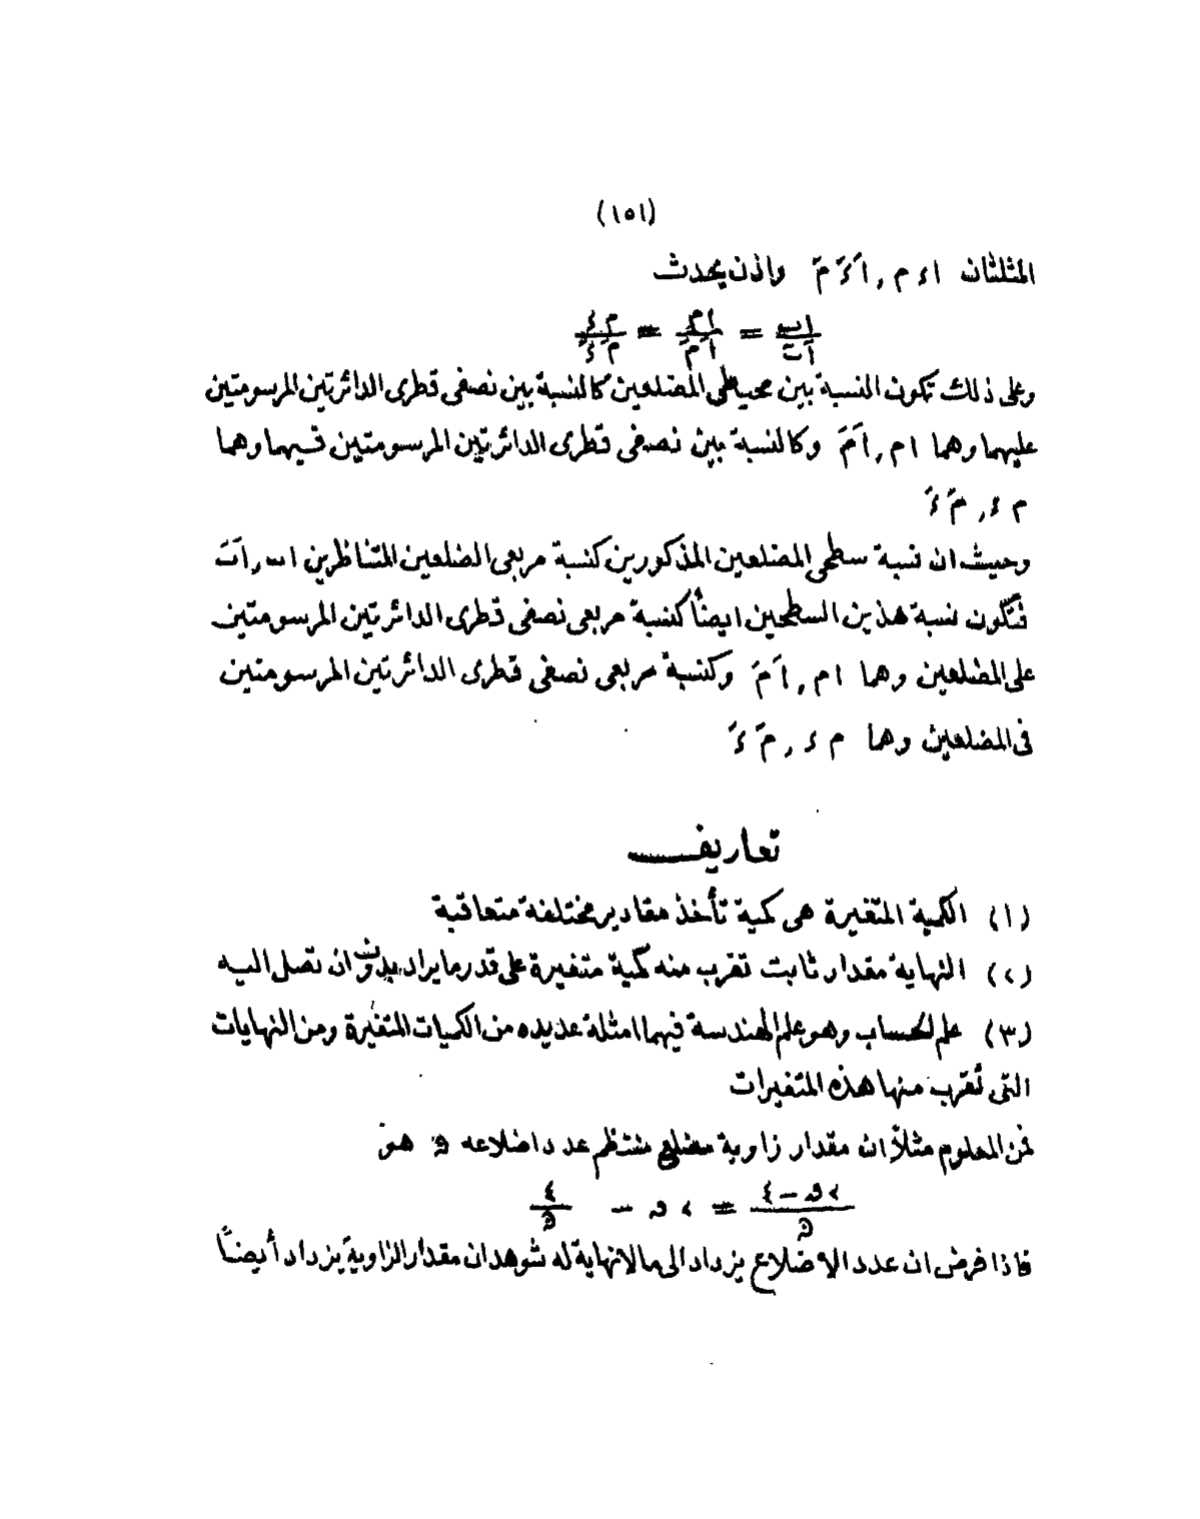 (١٥١)
المثلثان ا ء م , اَ ءَ مَ واذن يحدث
اب/اَبَ = ام/اَمَ = م ء/مَ ءَ
وعلى ذلك تكون النسبة بين محيطى المضلعين كالنسبة بين نصفى قطرى الدائرتين المرسومتين
عليهما وهما ام , اَمَ وكالنسبة بين نصفى قطرى الدائرتين المرسومتين فيهما وهما
م ء , مَ ءَ
وحيث ان نسبة سطحى المضلعين المذكورين كنسبة مربعى الضلعين المتناظرين اب , اَبَ
فتكون نسبة هذين السطحين ايضاً كنسبة مربعى نصفى قطرى الدائرتين المرسومتين
على المضلعين وهما ام , اَمَ وكنسبة مربعى نصفى قطرى الدائرتين المرسومتين
فى المضلعين وهما م ء , مَ ءَ
تعاريف
(١) الكمية المتغيرة هى كمية تأخذ مقادير مختلفة متعاقبة
(٢) النهاية مقدار ثابت تقرب منه كمية متغيرة على قدر ما يراد بدون ان تصل اليه
(٣) علم الحساب وهو علم الهندسة فيهما امثلة عديده من الكميات المتغيرة ومن النهايات
التى تقرب منها هذه المتغيرات
فمن المعلوم مثلاً ان مقدار زاوية مضلع منتظم عدد اضلاعه ن هو
٢ن-٤/ن = ٢ن - ٤/ن
فاذا فرض ان عدد الاضلاع يزداد الى مالانهاية له شوهد ان مقدار الزاوية يزداد أيضاً